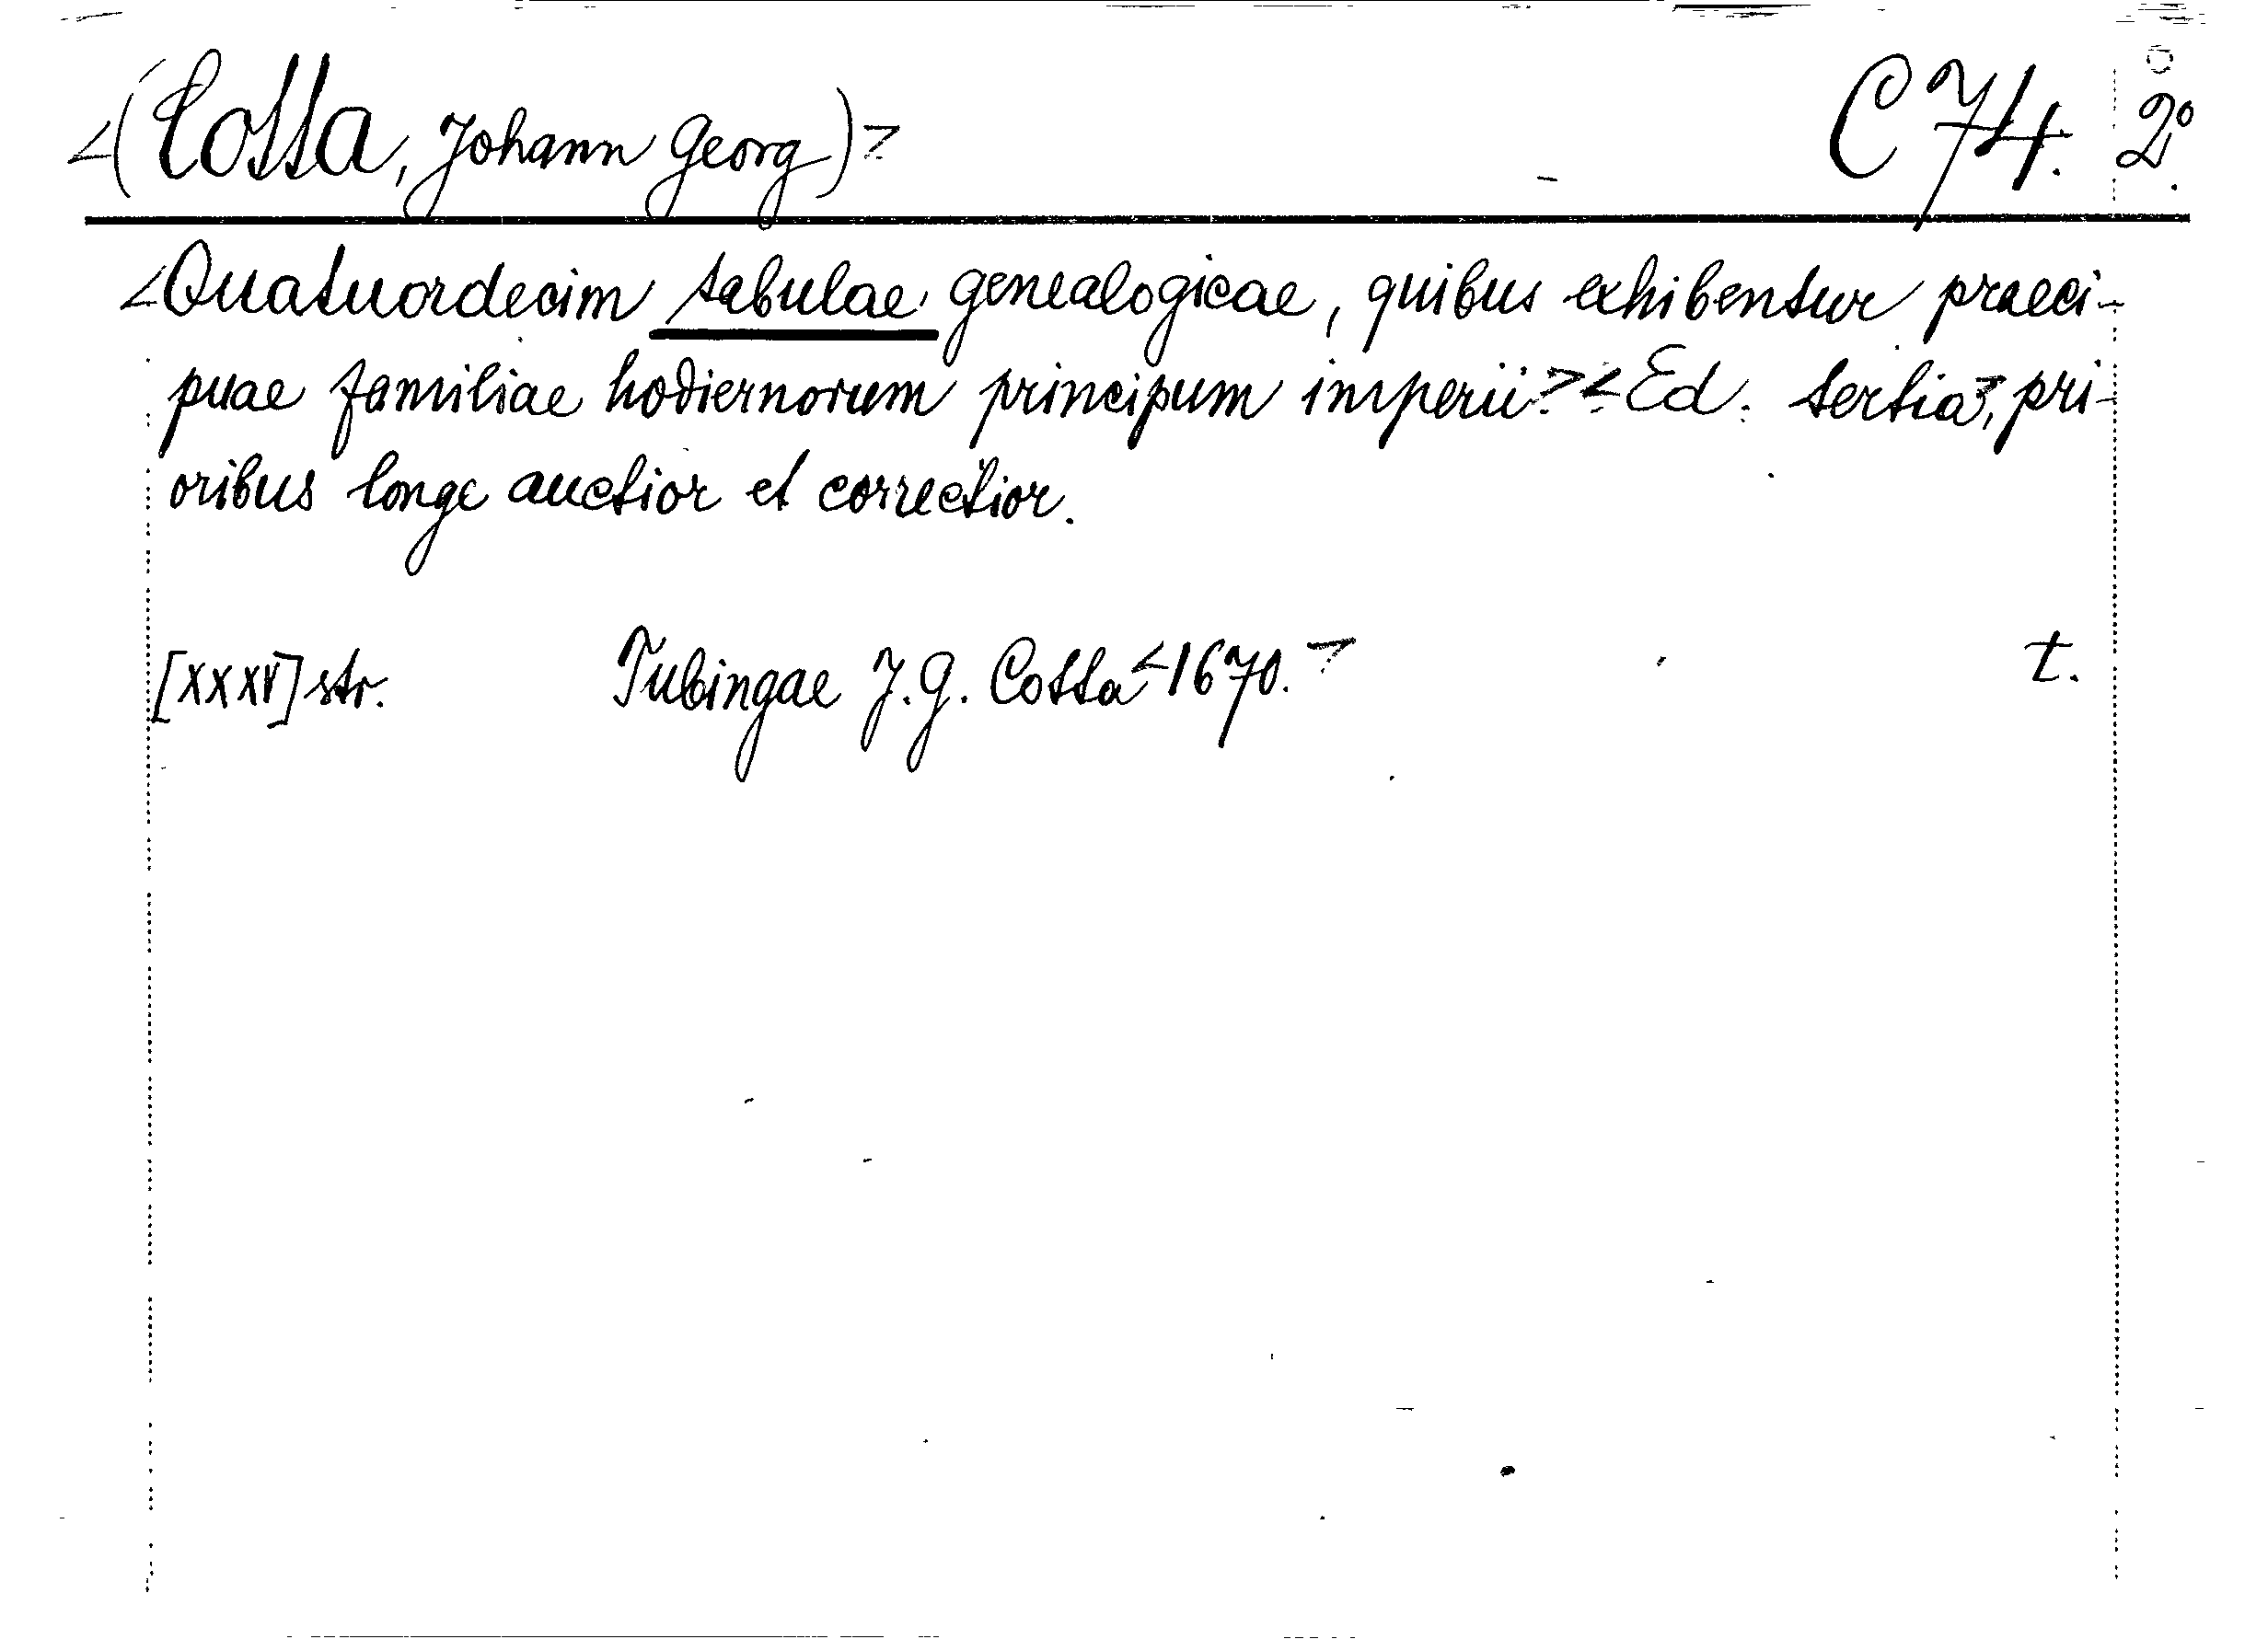 <(Cotta, Johann Georg)> C 74. 2°.
<Quatuordecim tabulae genealogicae, quibus exhibentur praeci-
puae familiae hodiernorum principum imperii.> <Ed. tertia>, pri-
oribus longe auctior et correctior.
[XXXV] str. Tubingae J. G. Cotta <1670.> t.